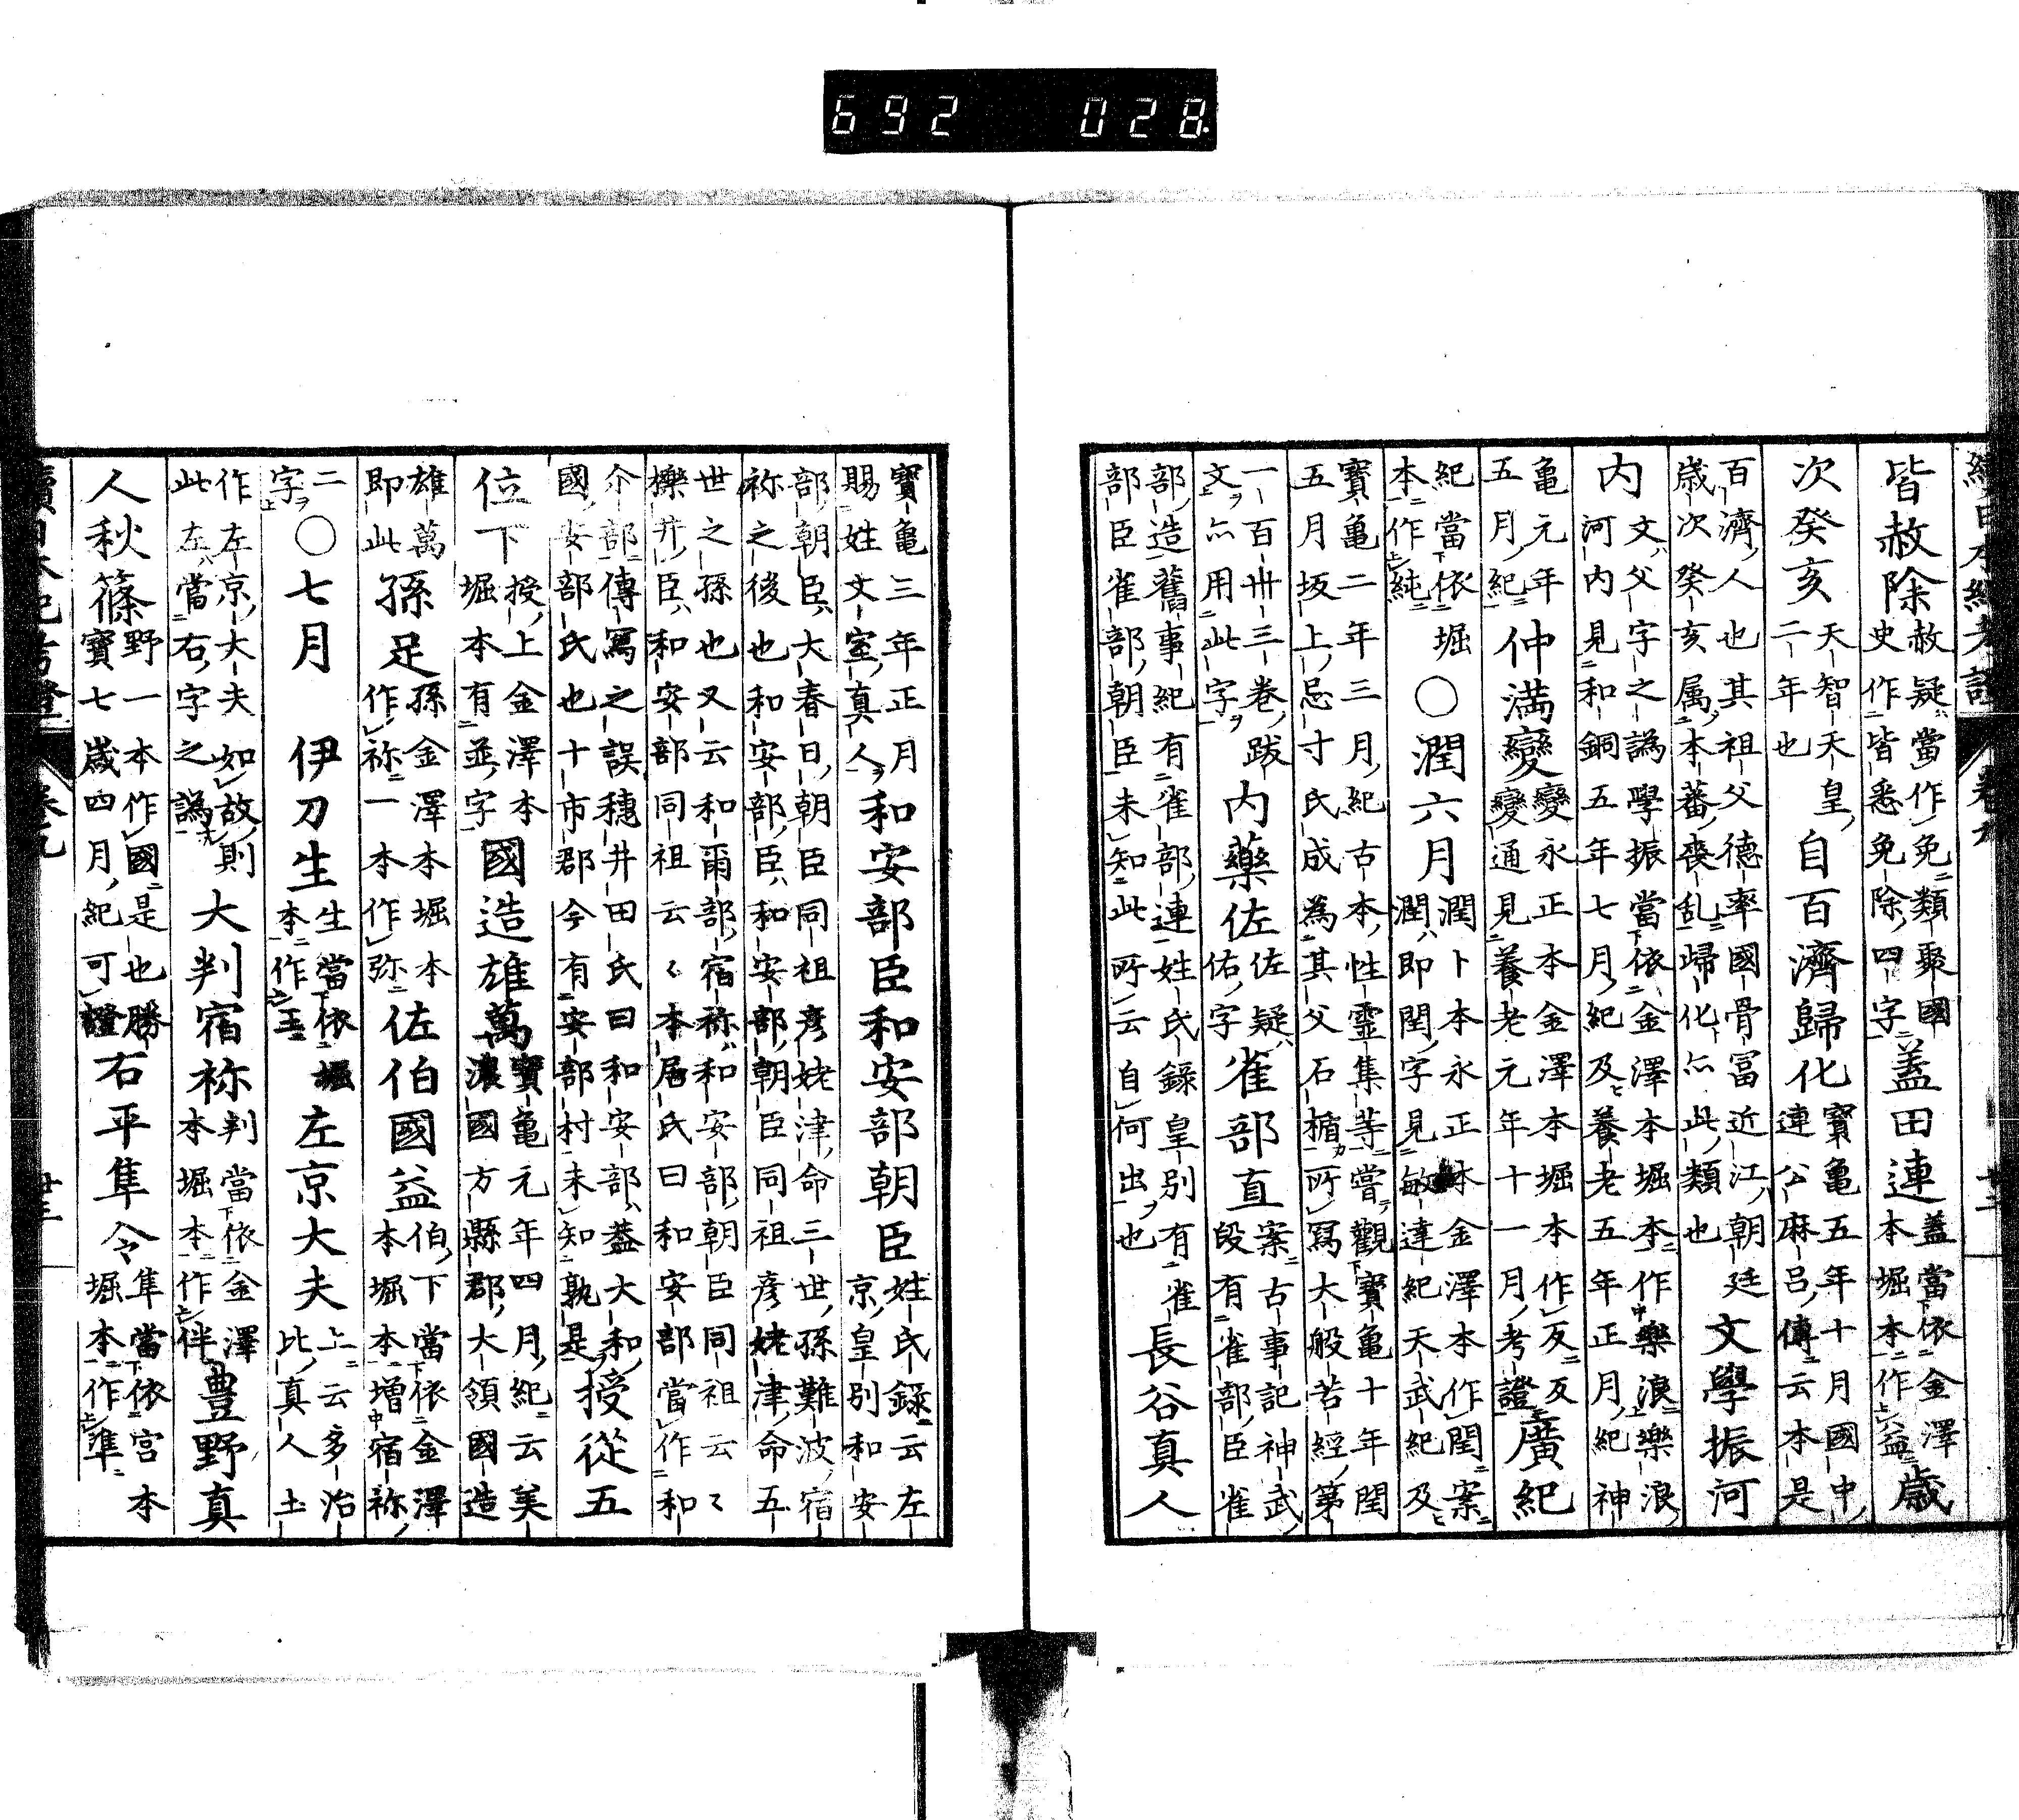 692 028
續日本紀考證 卷九 廿二
皆赦除赦疑當作免類聚國史作皆悉免除四字蓋田連蓋當依金澤本堀本作益歳
次癸亥天智天皇二年也自百濟歸化寶亀五年十月國中連公麻呂傳云本是
百濟人也其祖父德率國骨冨近江朝廷歳次癸亥属本蕃喪乱歸化亦此類也文學振河
内文父字之譌學振當依金澤本堀本作樂浪樂浪河内見和銅五年七月紀及養老五年正月紀神
亀元年五月紀仲満變變永正本金澤本堀本作反反變通見養老元年十一月考證廣紀
紀當依堀本作純〇潤六月潤卜本永正本金澤本作閏案潤即閏字見敏達紀天武紀及
寶亀二年三月紀古本性靈集等嘗觀寶亀十年閏五月坂上忌寸氏成為其父石楯所寫大般若經第
一百卅三卷跋文亦用此字内藥佐佐疑佑字雀部直案古事記神武段有雀部臣雀
部造舊事紀有雀部連姓氏錄皇別有雀部臣雀部朝臣未知此所云自何出也長谷真人
寶亀三年正月賜姓文室真人和安部臣和安部朝臣姓氏録云左京皇別和安
部朝臣大春日朝臣同祖彦姥津命三世孫難波宿祢之後也和安部臣和安部朝臣同祖彦姥津命五
世之孫也又云和爾部宿祢和安部朝臣同祖云々櫟井臣和安部同祖云々本居氏曰和安部當作和
介部傳寫之誤穗井田氏曰和安部蓋大和國安部氏也十市郡今有安部村未知孰是授從五
位下授上金澤本堀本有並字國造雄萬寶亀元年四月紀云美濃國方縣郡大領國造
雄萬即此孫足孫金澤本堀本作祢一本作弥佐伯國益伯下當依金澤本堀本増宿祢
二字〇七月伊刀生生當依堀本作王左京大夫上云多治比真人土
作左京大夫如故則此左當右字之譌大判宿祢判當依金澤本堀本作伴豊野真
人秋篠野一本作國是也勝寶七歳四月紀可證右平隼令隼當依宮本堀本作準
續日本紀考證 卷九 廿三